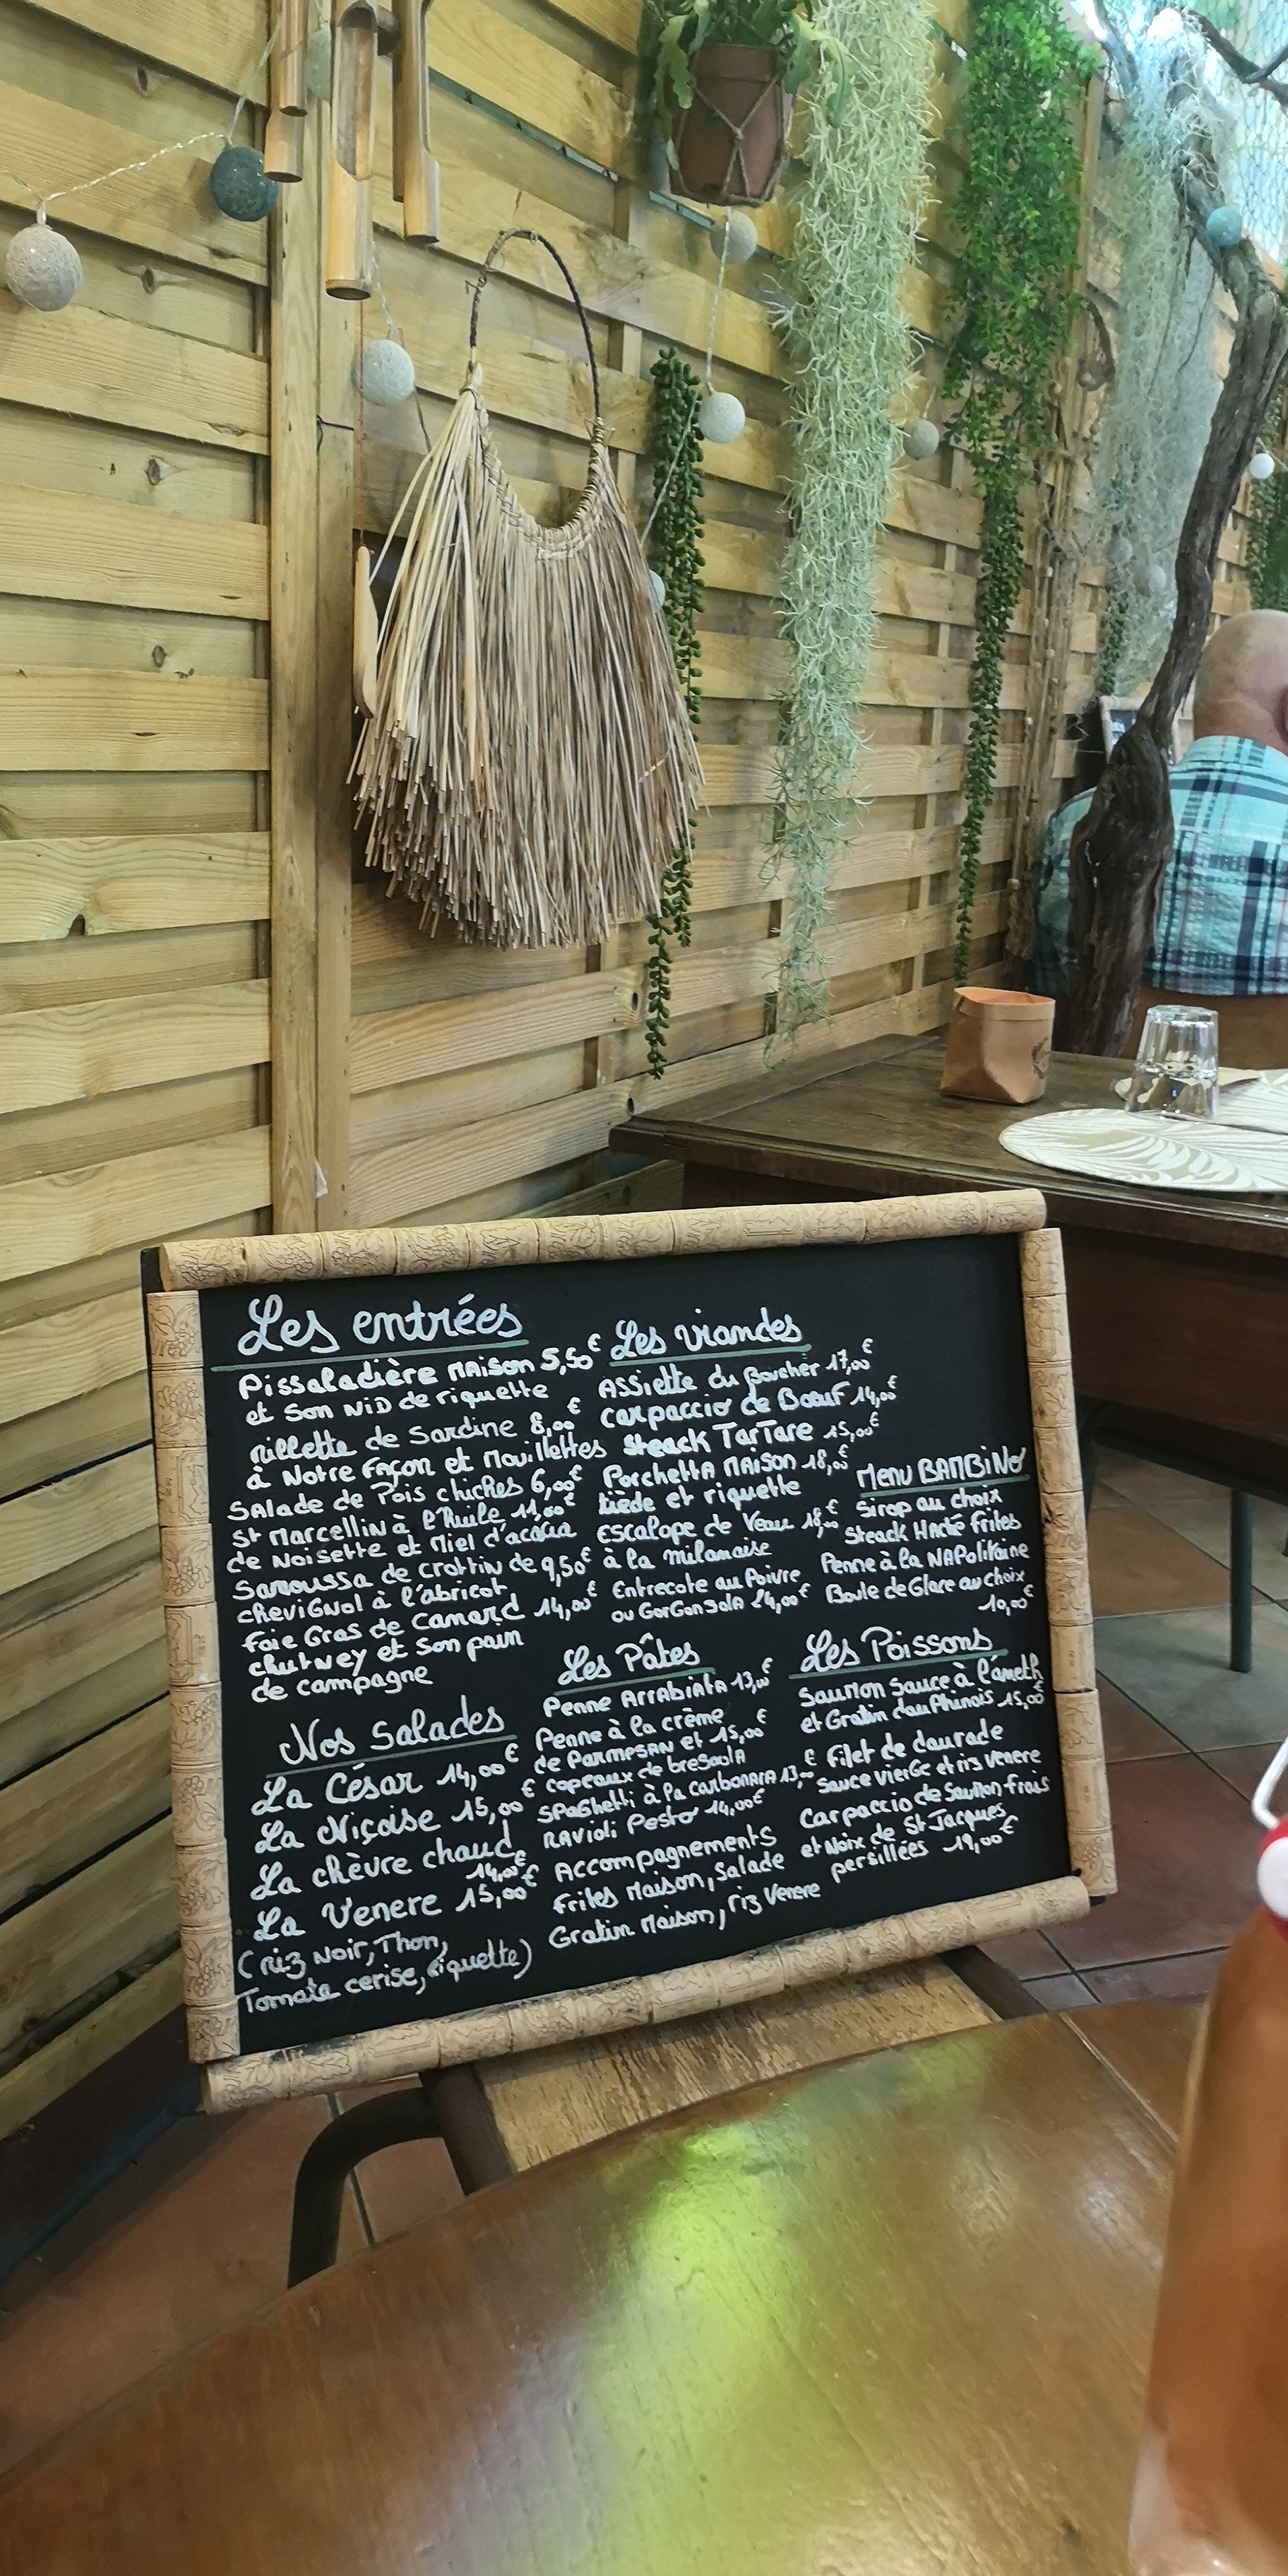 Les entrées
Pissaladière Maison 5,50€
et Son NiD de riquette
rillette de Sardine 8,00€
à Notre Façon et Mouillettes
Salade de Pois chiches 6,00€
St Marcellin à l'Huile 11,00€
de Noisette et Miel d'acacia
Samoussa de crottin de 9,50€
chevignol à l'abricot
Foie Gras de Canard 14,00€
chutney et son pain
de campagne
Nos Salades
La César 14,00€
La Niçoise 15,00€
La chèvre chaud
14,00€
La Venere 15,00€
(riz Noir, Thon,
Tomate cerise, riquette)
Les viandes
Assiette du Boucher 17,00€
Carpaccio de Boeuf 14,00€
Steack TarTare 15,00€
Porchetta Maison 18,00€
tiède et riquette
Escalope de Veau 18,00€
à la milanaise
Entrecote au Poivre
ou GorGonzola 24,00€
Les Pâtes
Penne Arrabiata 13,00€
Penne à la crème
de Parmesan et 15,00€
copeaux de bresaola
Spaghetti à la Carbonara 13,00€
Ravioli Pesto 14,00€
Accompagnements
Frites Maison, Salade
Gratin Maison, riz Venere
Menu BAMBiNo
Sirop au choix
Steack Haché Frites
Penne à la NAPolitaine
Boule de Glace au choix
10,00€
Les Poissons
Saumon Sauce à l'aneth
et Gratin dauphinois 15,00€
Filet de daurade
Sauce vierge et riz venere
Carpaccio de Saumon frais
et Noix de St Jacques
persillées 19,00€